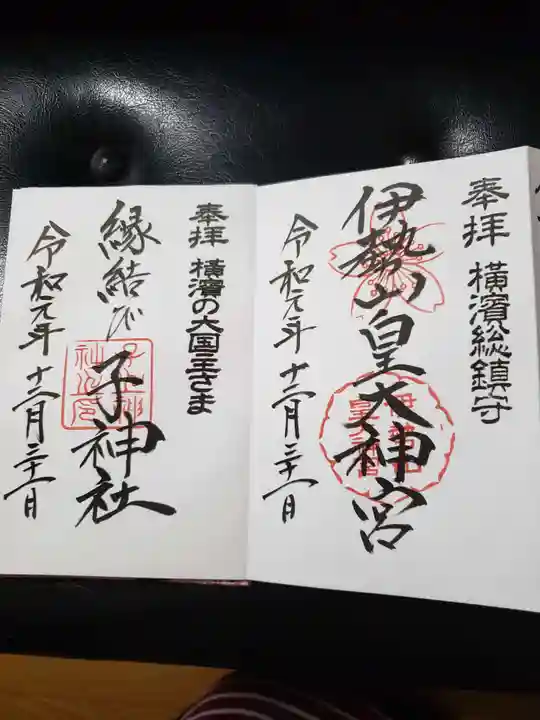 奉拝 横濱総鎮守
伊勢山皇大神宮
令和元年十二月三十一日
奉拝 横濱の大国主さま
縁結び 子神社
令和元年十二月三十一日